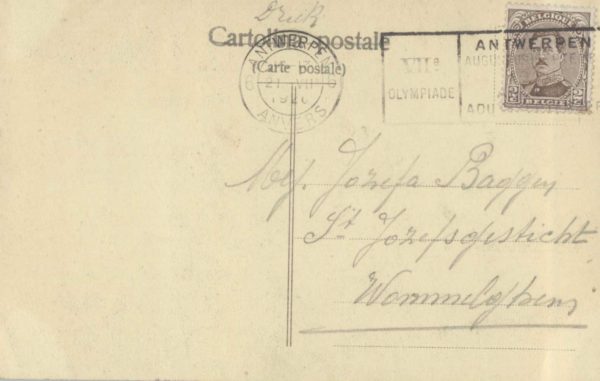 Druk
Cartolina postale
(Carte postale)
ANTWERPEN
6 21 VII 6
1920
ANVERS
VIIe
OLYMPIADE
ANTWERPEN
BELGIQUE
2 2
BELGIË
Mej. Jozefa Baggen
St Jozefsgesticht
Wommelghem